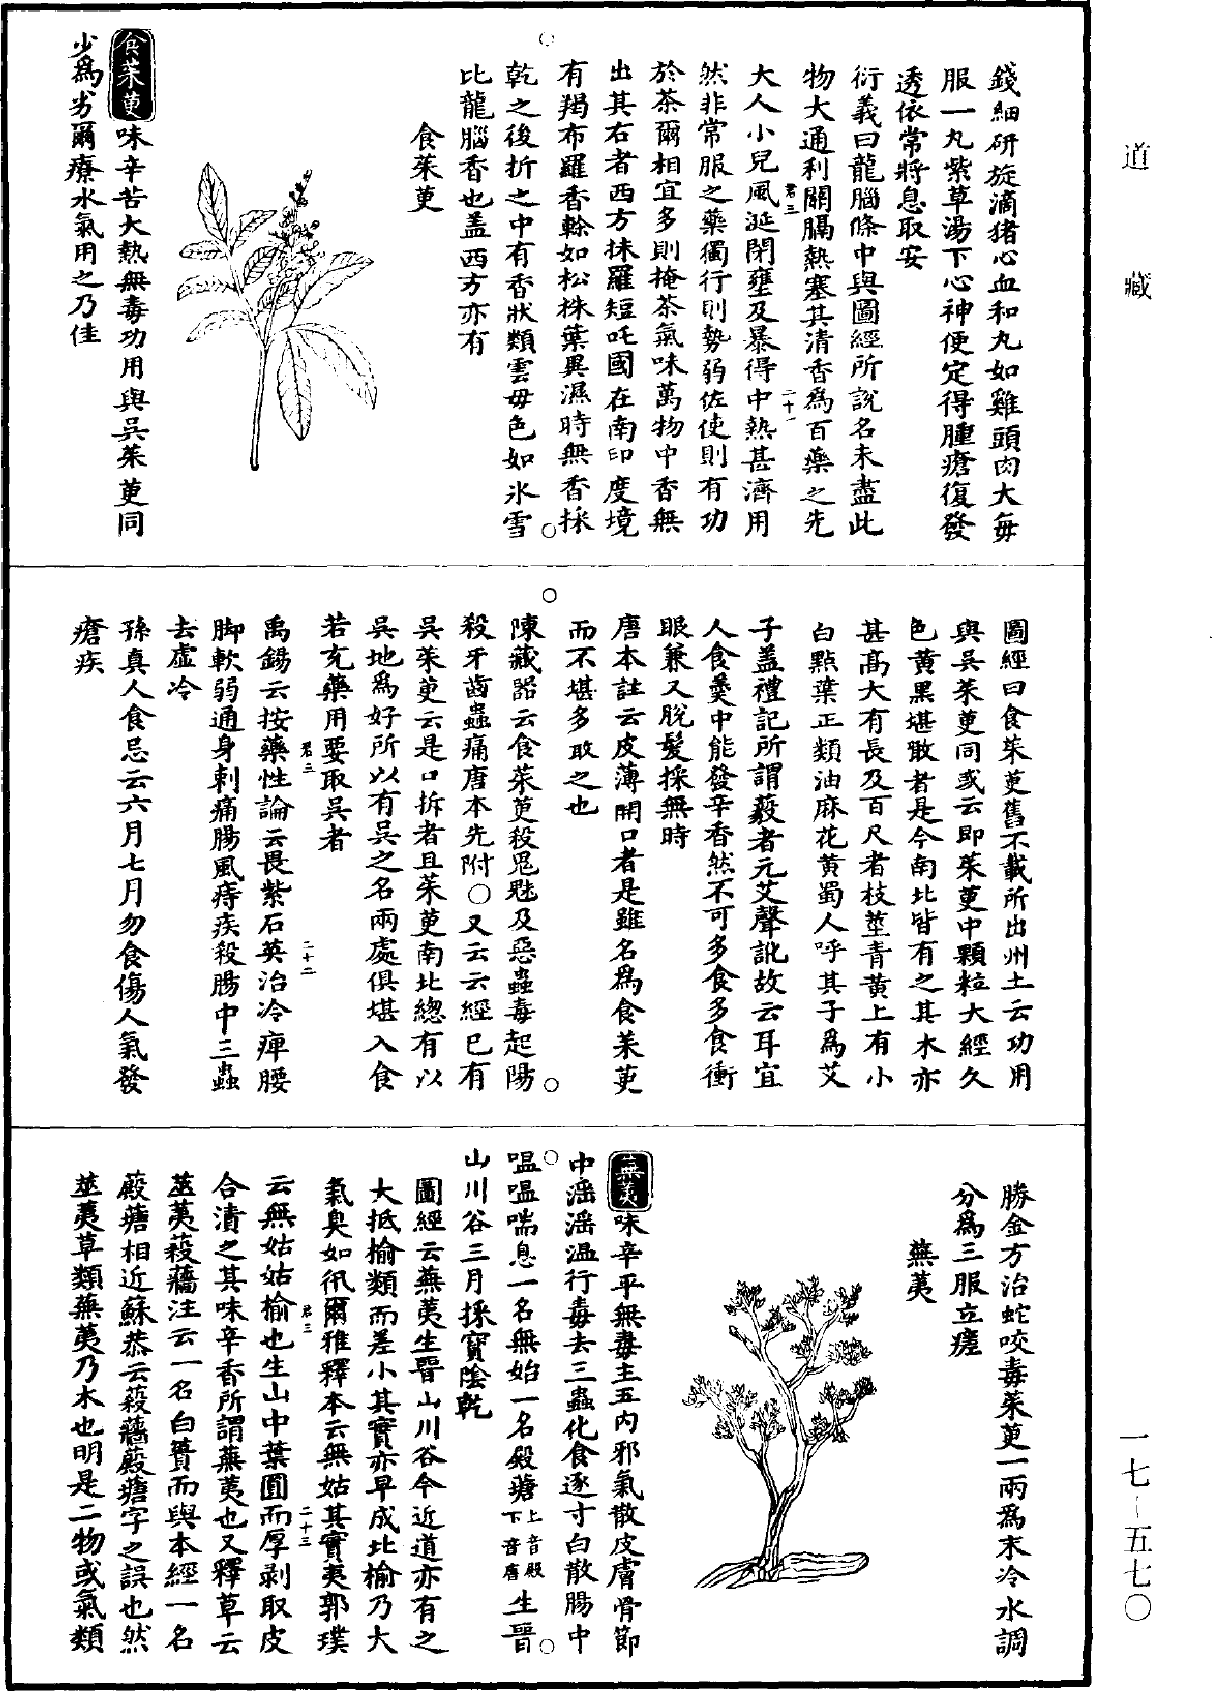 道藏
一七—五七〇
錢細研旋滴猪心血和丸如雞頭肉大每
服一丸紫草湯下心神便定得腫瘡復發
透依常將息取安
衍義曰龍腦條中與圖經所說名未盡此
物大通利關膈熱塞其清香爲百藥之先
君三
二十一
大人小兒風涎閉壅及暴得中熱甚濟用
然非常服之藥獨行則勢弱佐使則有功
於茶爾相宜多則掩茶氣味萬物中香無
出其右者西方抹羅短吒國在南印度境
有羯布羅香榦如松株葉異濕時無香採
乾之後折之中有香狀類雲母色如氷雪
比龍腦香也盖西方亦有
食茱萸
食茱萸味辛苦大熱無毒功用與吳茱萸同
少爲劣爾療水氣用之乃佳
圖經曰食茱萸舊不載所出州土云功用
與吳茱萸同或云即茱萸中顆粒大經久
色黄黑堪啖者是今南北皆有之其木亦
甚髙大有長及百尺者枝莖青黄上有小
白點葉正類油麻花黄蜀人呼其子爲艾
子盖禮記所謂藙者元艾聲訛故云耳宜
人食羹中能發辛香然不可多食多食衝
眼兼又脫髮採無時
唐本註云皮薄開口者是雖名爲食茱萸
而不堪多啖之也
陳藏器云食茱萸殺鬼魅及惡蟲毒起陽
殺牙齒蟲痛唐本先附○又云云經已有
吳茱萸云是口拆者且茱萸南北緫有以
吳地爲好所以有吳之名兩處俱堪入食
若充藥用要取吳者
君三
二十二
禹錫云按藥性論云畏紫石英治冷痺腰
脚軟弱通身刺痛腸風痔疾殺腸中三蟲
去虛冷
孫真人食忌云六月七月勿食傷人氣發
瘡疾
勝金方治蛇咬毒茱萸一兩爲末冷水調
分爲三服立瘥
蕪荑
蕪荑味辛平無毒主五内邪氣散皮膚骨節
中滛滛温行毒去三蟲化食逐寸白散腸中
嗢嗢喘息一名無姑一名㕡蘠上音殿下音唐生晉
山川谷三月採實陰乾
圖經云蕪荑生晉山川谷今近道亦有之
大抵榆類而差小其實亦早成比榆乃大
氣臭如犼爾雅釋木云無姑其實夷郭璞
君三
二十三
云無姑姑榆也生山中葉圓而厚剥取皮
合漬之其味辛香所謂蕪荑也又釋草云
莁荑蔱蘠注云一名白蕡而與本經一名
蕨蘠相近蘇恭云蔱蘠蕨蘠字之誤也然
莁荑草類蕪荑乃木也明是二物或氣類